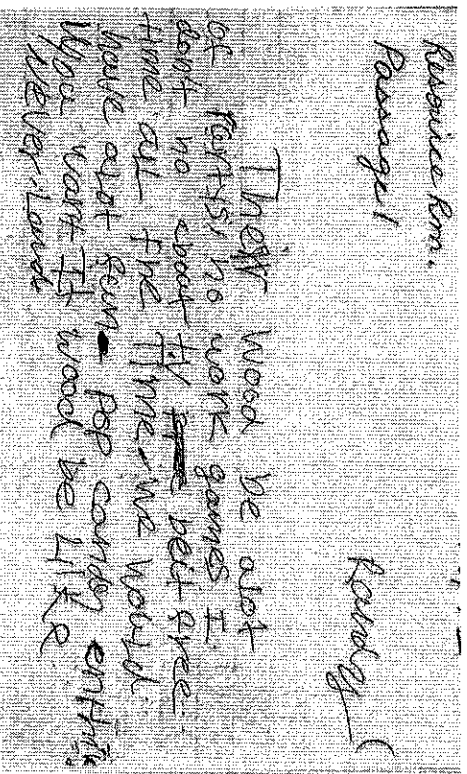 Resource Rm.
Passage 1
Randy
Their wood be alot
of Partis, no work games I
dont no about T.V beit free
time all the time we would
have alot fun pop candy
you want It wood be Like
Never-Land